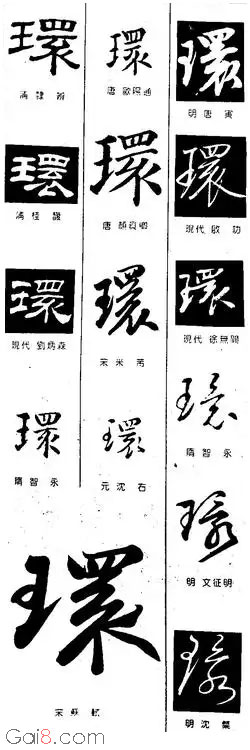 環
清 隸 辨
環
清 桂 馥
環
現代 劉炳森
環
隋 智 永
環
唐 歐陽通
環
唐 顏真卿
環
宋 米 芾
環
元 沈 右
環
宋 蘇 軾
環
明 唐 寅
環
現代 啟 功
環
現代 徐無聞
環
隋 智 永
環
明 文征明
環
明 沈 粲
Gai8.com